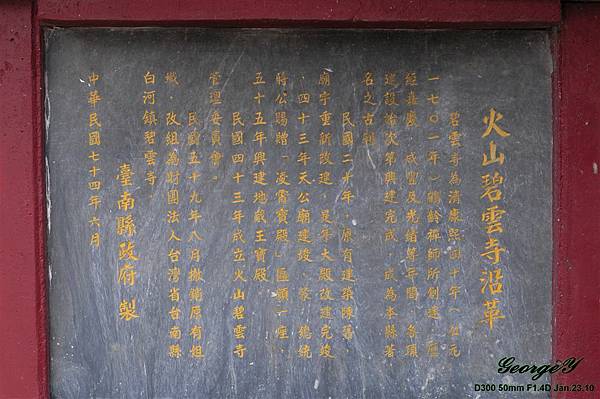 火山碧雲寺沿革
碧雲寺為清康熙四十年(公元
一七〇一年)鶴齡禪師所創建,歷
經嘉慶、咸豐及光緒等年間,各項
建設始次第興建完成,成為本縣著
名之古剎。
民國二十年,原有建築陳舊,
廟宇重新改建,是年大殿改建完竣
,四十三年天公廟建竣、蒙 總統
蔣公賜贈「凌霄寶殿」匾額一座,
五十五年興建地藏王寶殿。
民國四十三年成立火山碧雲寺
管理委員會。
民國五十九年八月撤銷原有組
織 改組為財團法人台灣省台南縣
白河鎮碧雲寺。
臺南縣政府 製
中華民國七十四年六月
GeorgeY
D300 50mm F1.4D Jan.23.10